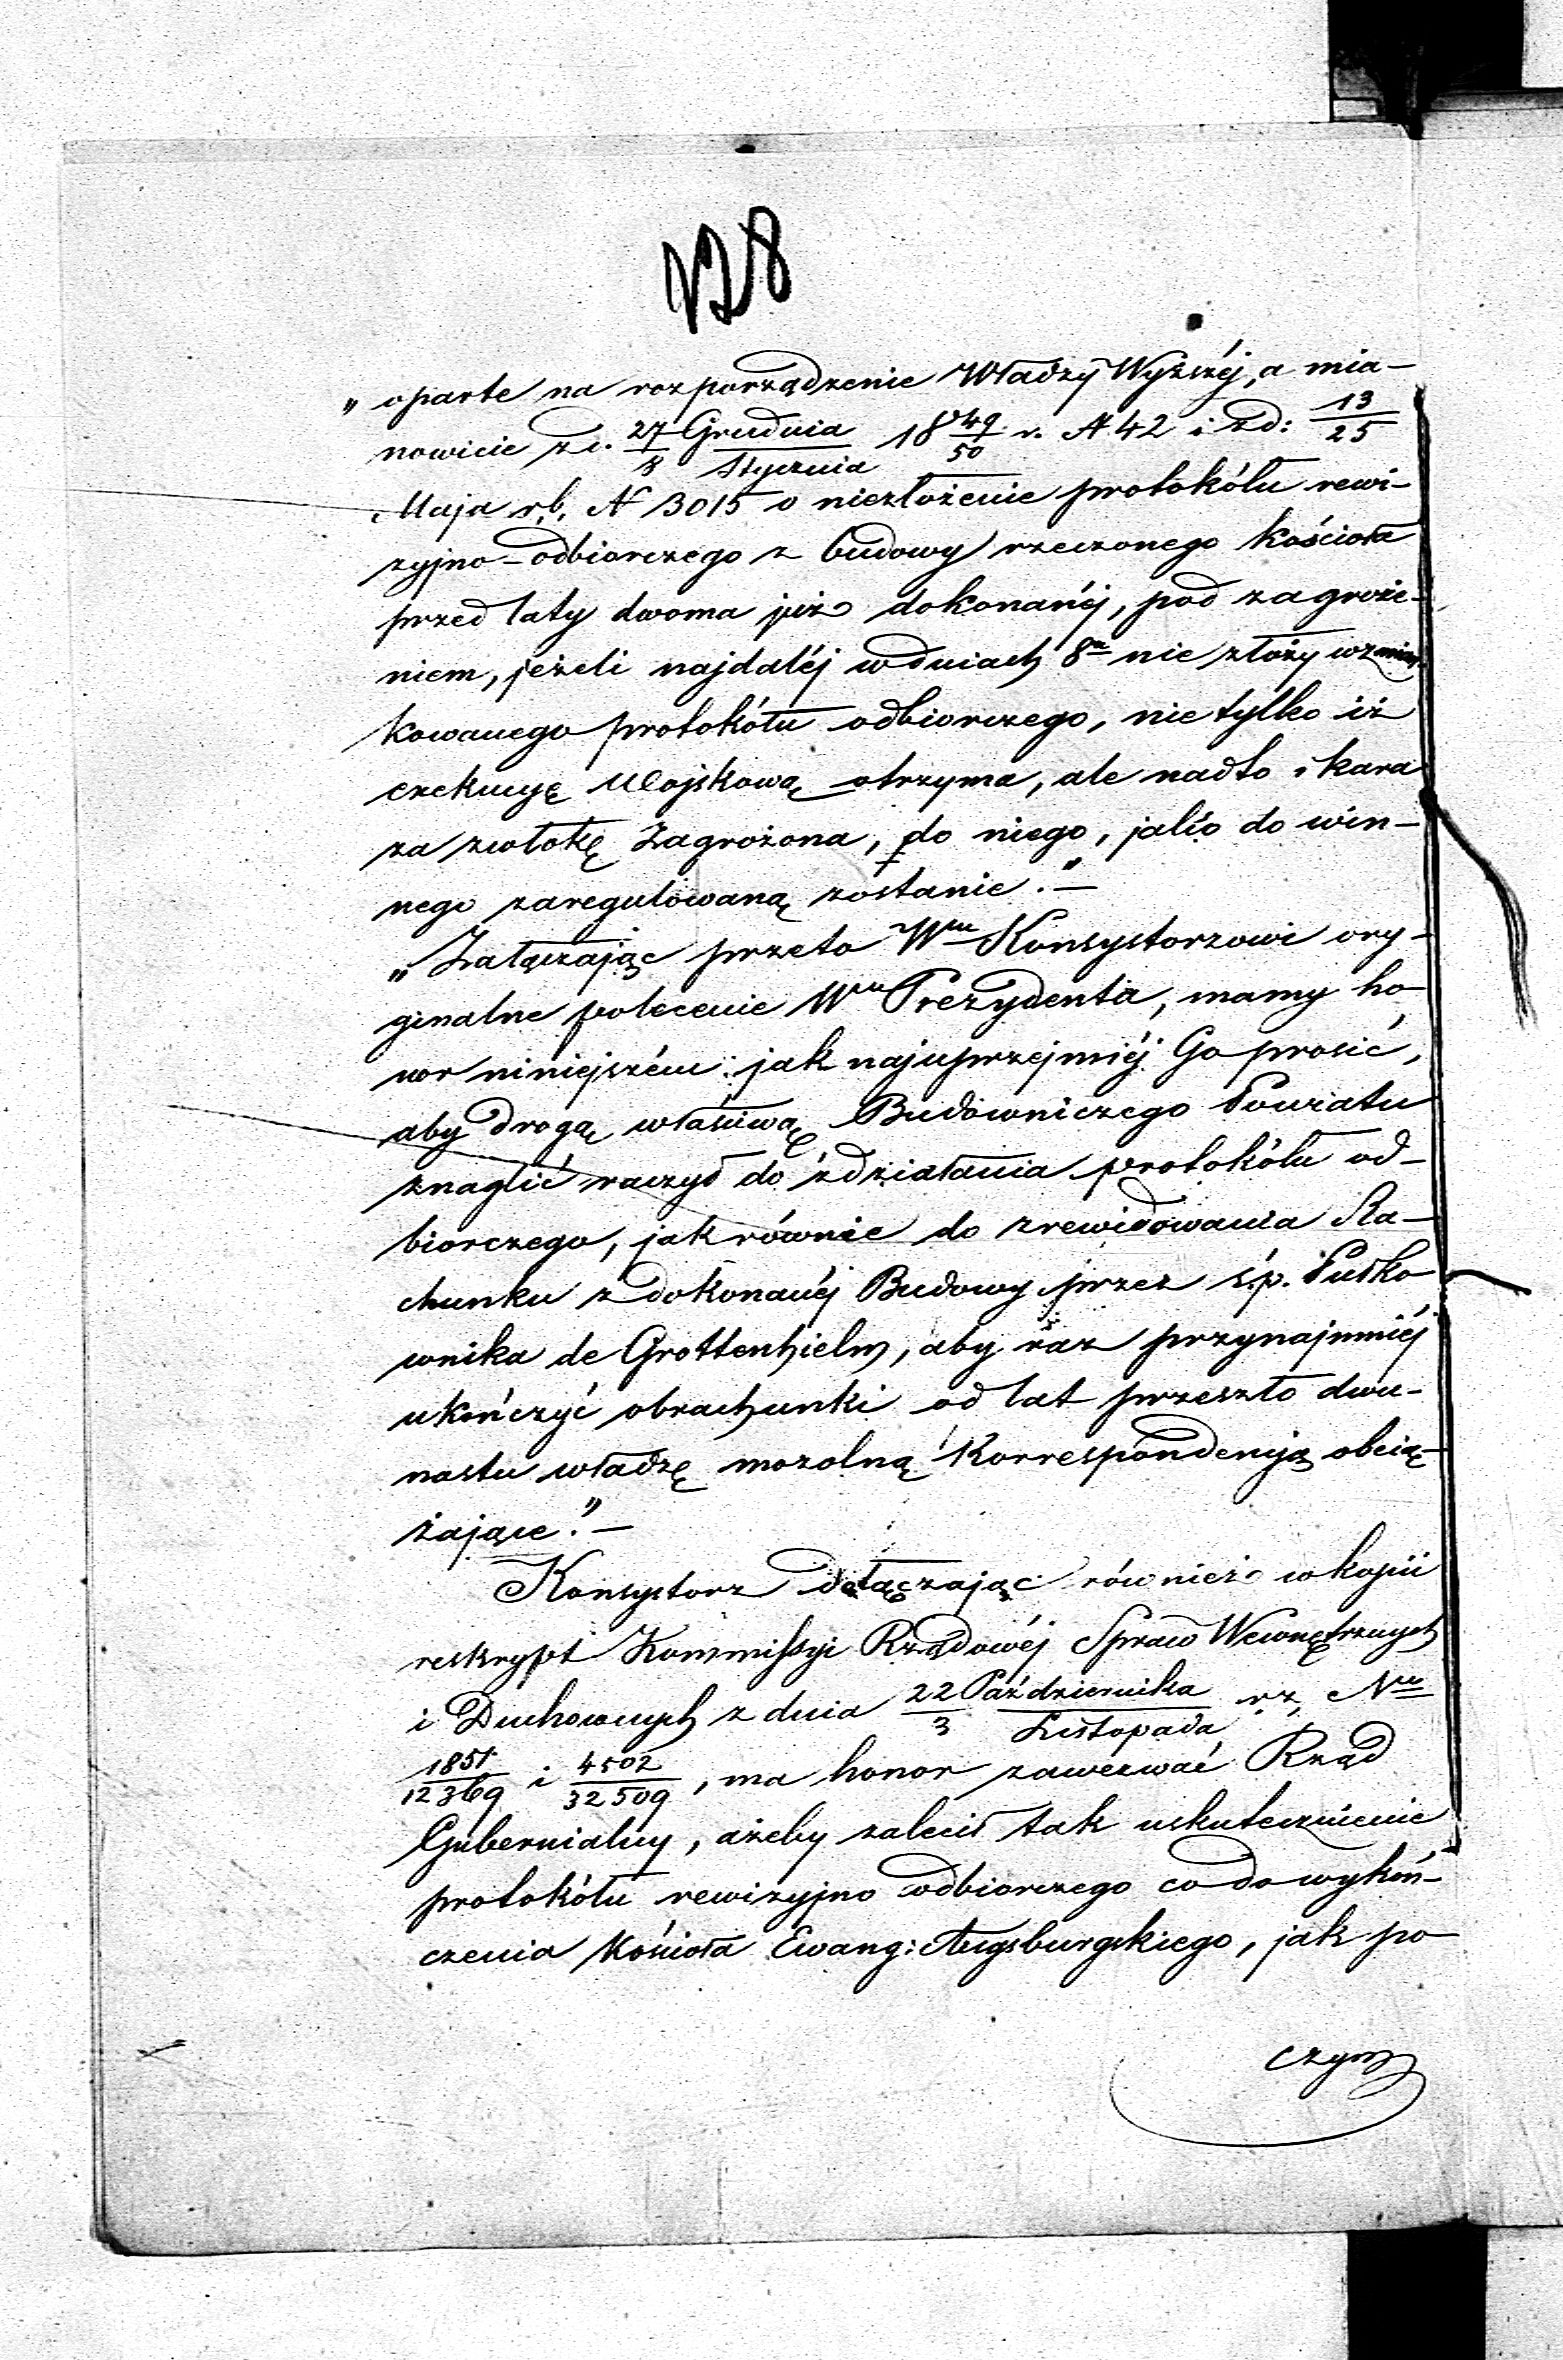 128
„ oparte na rozporządzenie Władzy Wyższéj, a mia-
nowicie z d. 27/8 Grudnia/Stycznia 18 49/50 r. N 42 i z d: 13/25
Maja r.b. N 3015 o niezłożenie protokółu rewi-
zyjno-odbiorczego z budowy rzeczonego kościoła
przed laty dwoma już dokonanéj, pod zagroże-
niem, jeżeli najdaléj w dniach 8u nie złoży wzmian-
kowanego protokółu odbiorczego, nie tylko iż
exekucyę Wojskową otrzyma, ale nadto i kara
za zwłokę Zagrożona, do niego, jako do win-
nego zaregulowaną zostanie."-
„Załączając przeto Wmu Konsystorzowi ory-
ginalne polecenie Wgo Prezydenta, mamy ho-
nor niniejszém jak najuprzejmiéj Go prosić,
aby drogą właściwą Budowniczego Powiatu
znaglić raczył do zdziałania protokółu od-
biorczego, jak równie do zrewidowania Ra-
chunku z dokonanéj Budowy przez ś.p. Pułko
wnika de Grottenhielm, aby raz przynajmniéj
ukończyć obrachunki od lat przeszło dwu-
nastu władzę mozolną Korrespondencyą obcią-
żające."-
Konsystorz dołączając również w kopii
reskrypt Kommissyi Rządowéj Spraw Wewnętrznych
i Duchownych z dnia 22/3 Października/Listopada r.z. Nru
1851/12369 i 4502/32509, ma honor zawezwać Rząd
Gubernialny, ażeby zalecił tak uskutecznienie
protokółu rewizyjno odbiorczego co do wykoń-
czenia Kościoła Ewang: Augsburgskiego, jak po
czym